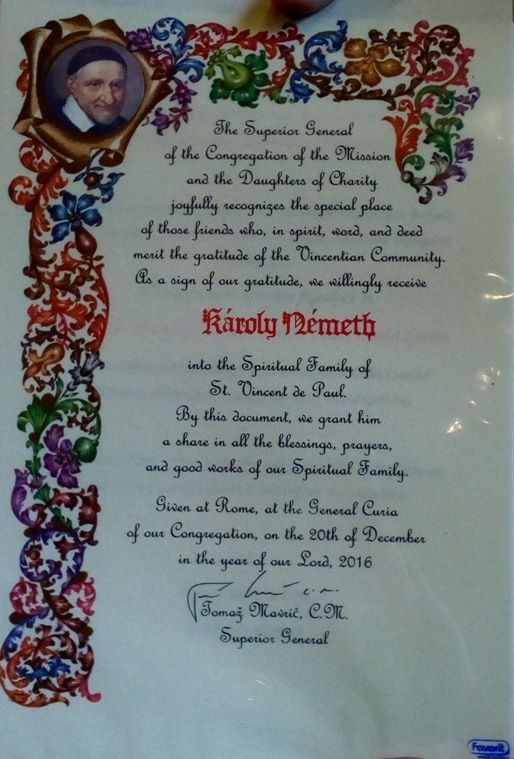 The Superior General
of the Congregation of the Mission
and the Daughters of Charity
joyfully recognizes the special place
of those friends who, in spirit, word, and deed
merit the gratitude of the Vincentian Community.
As a sign of our gratitude, we willingly receive
Károly Németh
into the Spiritual Family of
St. Vincent de Paul.
By this document, we grant him
a share in all the blessings, prayers,
and good works of our Spiritual Family.
Given at Rome, at the General Curia
of our Congregation, on the 20th of December
in the year of our Lord, 2016
Tomaž Mavrič, C.M.
Superior General
Favorit